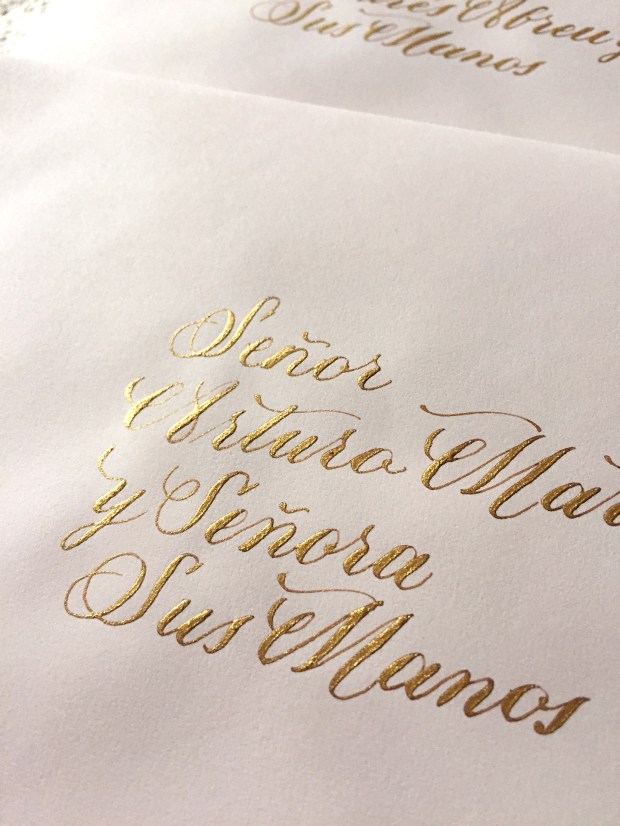 Abreu y
Sus Manos
Señor
Arturo
y Señora
Sus Manos